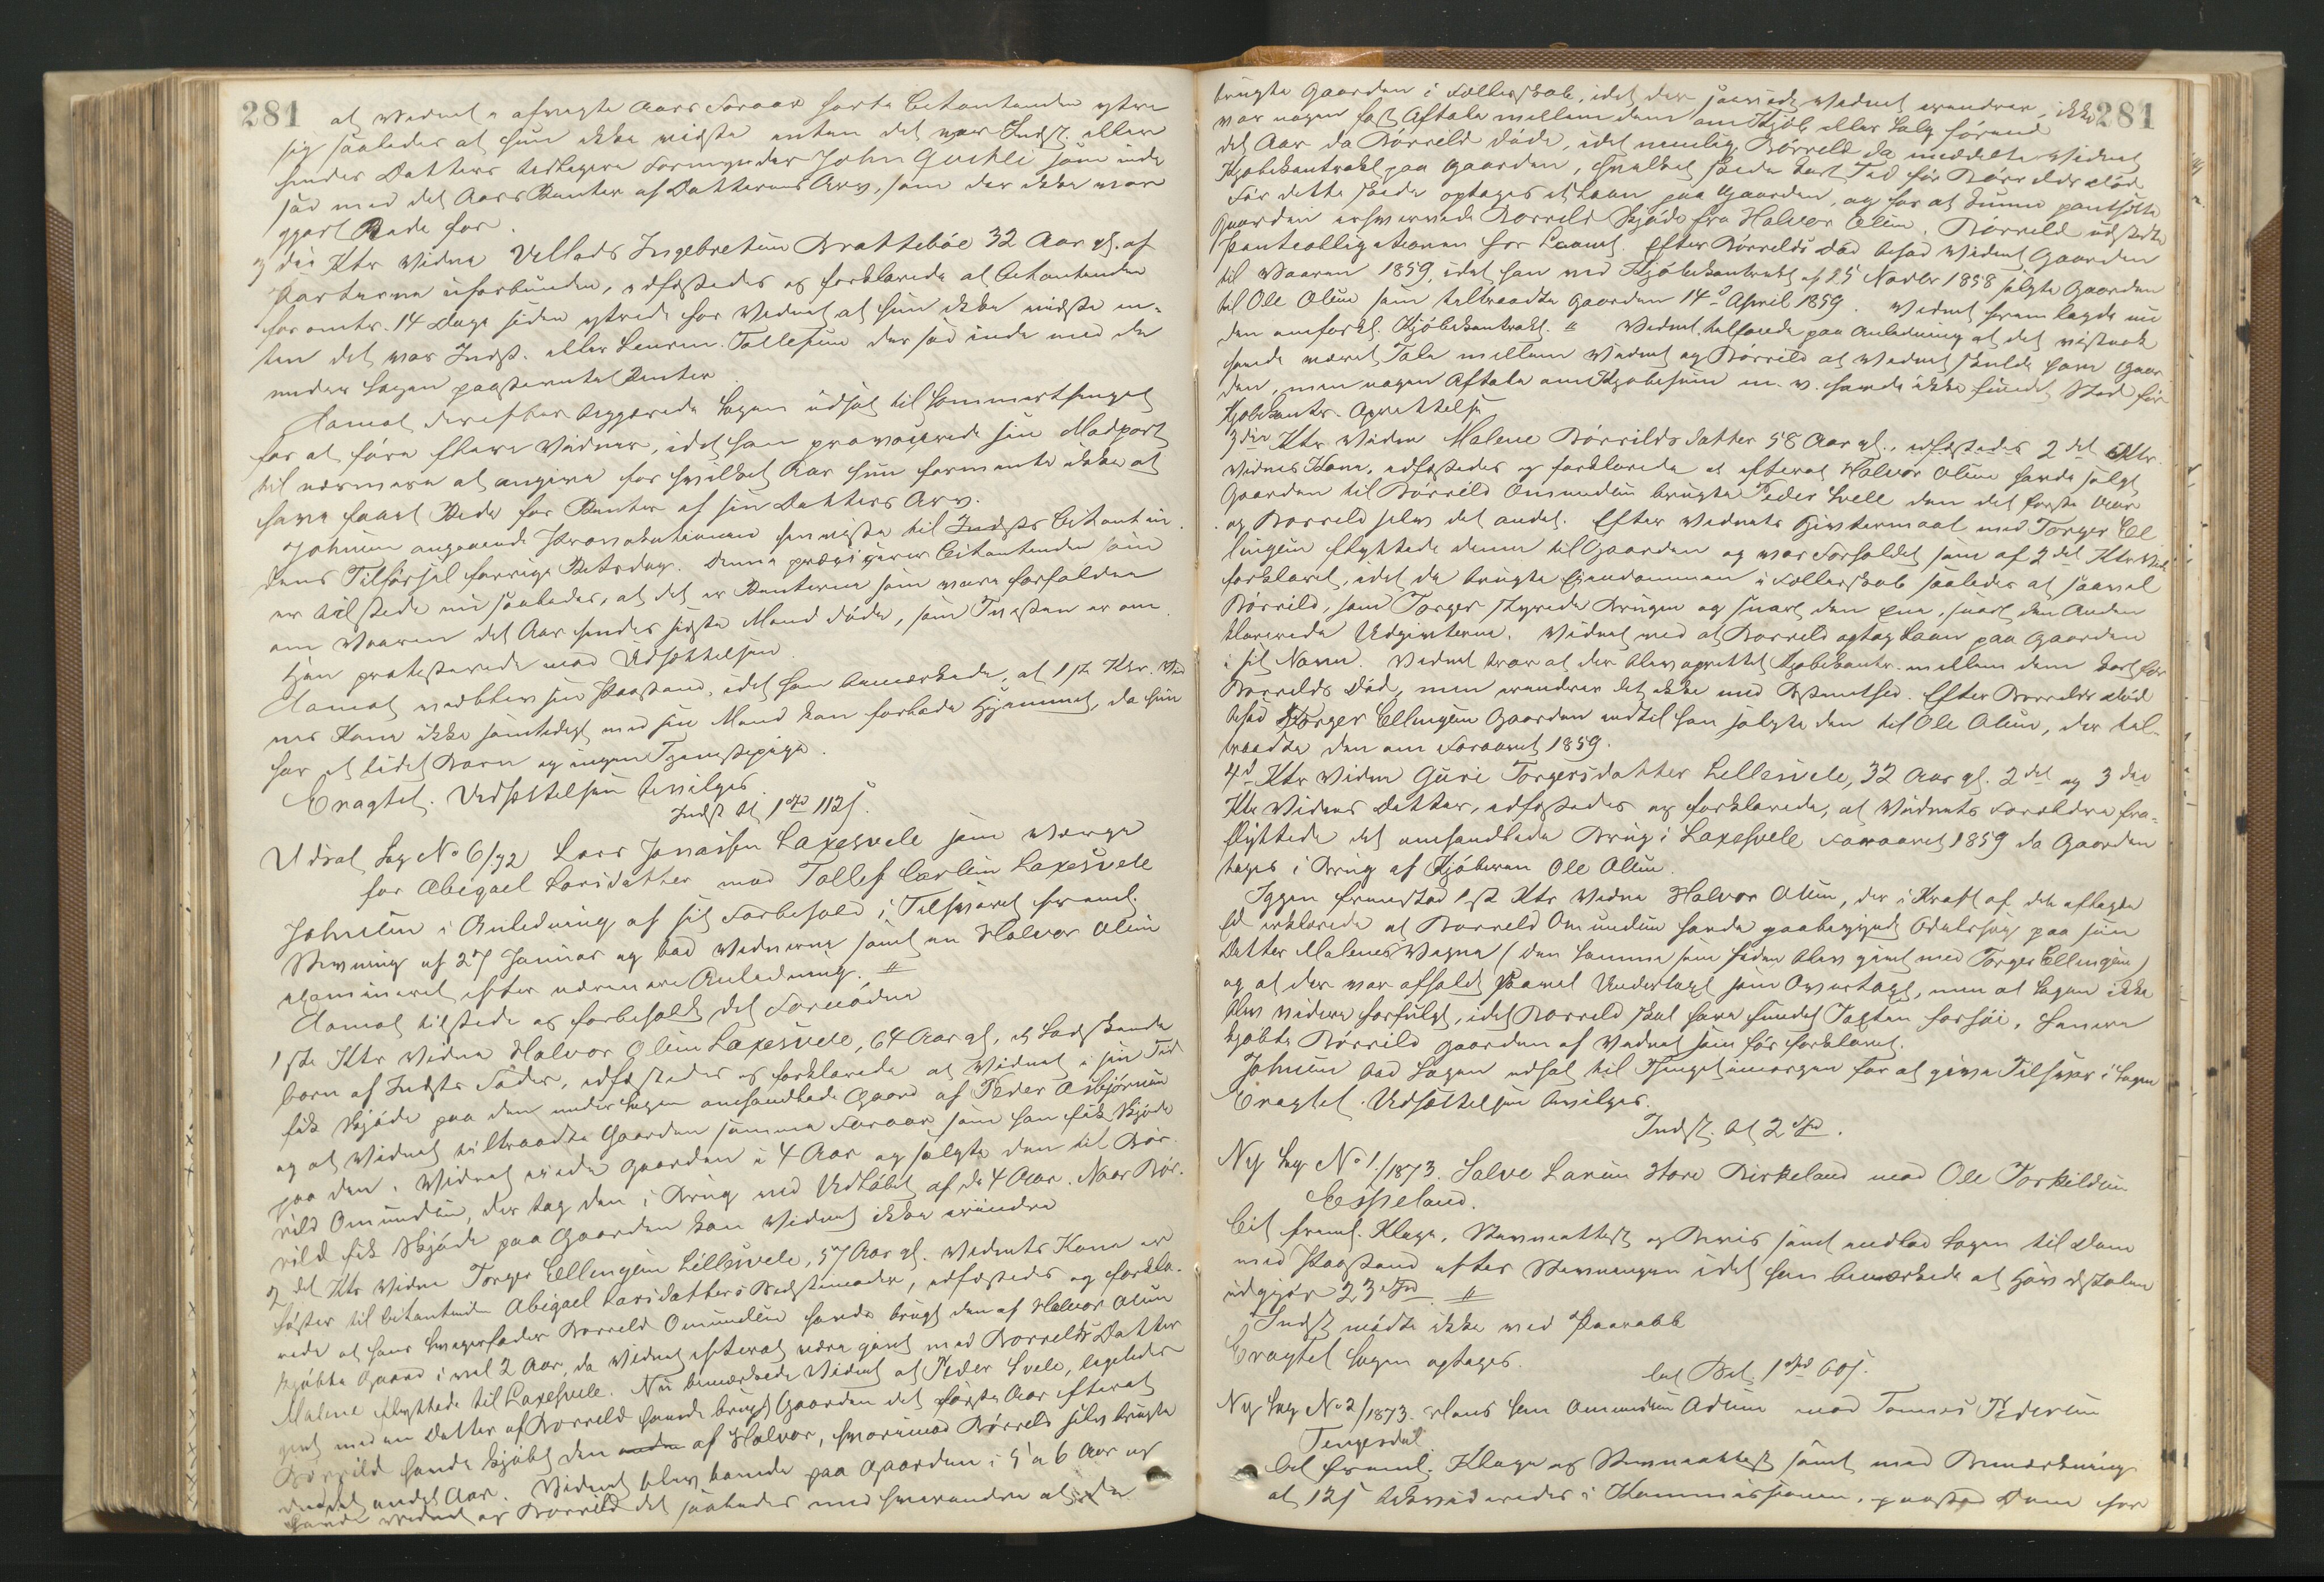 281
at Vidnet afvigte Aars Foraar hørte Citantinden ytre
sig saaledes at hun ikke vidste enten det var Indst. eller
hendes Datters tidligere Formynder John Guekli som inde
sad med det Aars Renter af Datterens Arv, som der ikke var
gjort Rede for.
Ktr Vidne Vellads Ingebretsen Brattebøe 32 Aar gl. af
Parterne uforbunden, edfæstedes og forklarede at Citantinden
for omtr. 14 Dage siden ytrede for Vidnet at hun ikke vidste en-
ten det var Indst. eller Lensm. Tollefsen der sad inde med de
under Sagen paastevnte Renter.
Aamot derefter begjærede Sagen udsat til Sommerthinget
for at føre flere Vidner, idet han provoserede sin Modpart
til nærmere at angive for hvilket Aar hun formente ikke at
have faaet Rede for Renter af sin Datters Arv.
Johnsen angaaende Provokationen henviste til Indsts Citantin
dens Tilførsel forrige Retsdag. Denne præciserer Citantinden som
er tilstede nu saaledes, at det er Renterne som vare forfaldne
om Vaaren det Aar hendes sidste Mand døde, som Tvisten er om.
Han protesterede mod Udsættelsen.
Aamot vedblev sin Paastand, idet han bemærkede, at 1ste Ktr. Vid
nes Kone ikke samtidigt med sin Mand kan forlade Hjemmet, da hun
har et lidet Barn og ingen Tjenestepige.
Eragtet. Udsættelsen bevilges.
Indst bt 1 Spd 112 s.
Udsat Sag No 6/72 Lars Jonassen Laxesvele som Værge
for Abigael Larsdatter mod Tollef Carlsen Laxesvele
Johnsen i Anledning af sit Forbehold i Tilsvaret freml.
Stevning af 27 Januar og bad Vidnerne samt en Halvor Olsen
examineret efter nærmere Anledning. //
Aamot tilstede og forbeholdt det Fornødne
1ste Ktr Vidne Halvor Olsen Laxesvele, 64 Aar gl, et Sødskende
barn af Indsts Fader, edfæstedes og forklarede at Vidnet i sin Tid
fik Skjøde paa den under Sagen omhandlede Gaard af Peder Asbjørnsen
og at Vidnet tiltraadte Gaarden samme Foraar som han fik Skjøde
paa den. Vidnet eiede Gaarden i 4 Aar og solgte den til Bør-
rild Omundsen, der tog den i Brug ved Udløbet af de 4 Aar. Naar Bør-
rild fik Skjøde paa Gaarden kan Vidnet ikke erindre
2det Ktr Vidne Torger Ellingsen Lillesvele, 57 Aar gl. Vidnets Kone er
Søster til Citantinden Abigael Larsdatters Bedstemoder, edfæstedes og forkla-
rede at hans Svigerfader Borreld Omundsen havde brugt den af Halvor Olsen
kjøbte Gaard i vel 2 Aar, da Vidnet efterat være givt med Borrelds Datter
Malene flyttede til Laxesvele. Nu bemærkede Vidnet at Peder Svele, ligeledes
givt med en Datter af Borreld havde brugt Gaarden det første Aar efterat
Børrild havde kjøbt den af Halvor, hvorimod Børreld selv brugte
den det andet Aar. Vidnet blev boende paa Gaarden i 5 a 6 Aar og
havde Vidnet og Borreild det saaledes med hverandre at de
281
brugte Gaarden i Fællesskab, idet der, saavidt Vidnet erindrer, ikke
var nogen fast Aftale mellem dem om Kjøb eller Salg førend
det Aar da Børreld døde, idet nemlig Børreld da meddelte Vidnet
Kjøbekontrakt paa Gaarden, hvilket skede kort Tid før Børrelds Død
Før dette skede optoges et Laan paa Gaarden, og for at kunne pantsætte
Gaarden erhvervede Borreld Skjøde fra Halvor Olsen. Børreld udstedte
Panteobligationen for Laanet. Efter Børrelds Død besad Vidnet Gaarden
til Vaaren 1859, idet han ved Kjøbekontrakt af 25 Novbr 1858 solgte Gaarden
til Ole Olsen som tiltraadte Gaarden 14de April 1859. Vidnet fremlagde nu
den omforkl. Kjøbekontrakt. // Vidnet tilføiede paa Anledning at det vistnok
havde været Tale mellem Vidnet og Børrild at Vidnet skulde have Gaar-
den, men nogen Aftale om Kjøbesum m. v. havde ikke fundet Sted før
Kjøbekontr. Oprettelse
3die Ktr Vidne Malene Børrildsdatter 58 Aar gl., edfæstedes 2det Ktr.
Vidnes Kone, edfæstedes og forklarede at efterat Halvor Olsen havde solgt
Gaarden til Børrild Omundsen brugte Peder Svele den det første Aar
og Borreld selv det andet. Efter Vidnets Givtermaal med Torger El
lingsen flyttede denne til Gaarden og var Forholdet som af 2det Ktr Vidne
forklaret, idet de brugte Eiendommen i Fællesskab saaledes at saavel
Børrild, som Torger styrede Brugen og snart den Ene, snart den Anden
klarerede Udgivterne. Vidnet ved at Borreld optog Laan paa Gaarden
i sit Navn. Vidnet tror at der blev oprettet Kjøbekontr. mellem dem kort før
Borrelds Død, men erindrer det ikke med Bestemthed. Efter Borrelds Død
besad Torger Ellingsen Gaarden indtil han solgte den til Ole Olsen, der til-
traadte den om Foraaret 1859.
4de Ktr Vidne Guri Torgersdatter Lillesvele, 32 Aar gl. 2det og 3die
Ktr Vidnes Datter, edfæstedes og forklarede, at Vidnets Forældre fra-
flyttede det omhandlede Brug i Laxesvele Foraaret 1859 da Gaarden
toges i Brug af Kjøberen Ole Olsen.
Igjen fremstod 1ste Ktr Vidne Halvor Olsen, der i Kraft af den aflagte
Ed erklærede at Borreld Omundsen havde paabegyndt Odelssag paa sin
Datter Malenes Vegne (den samme som siden blev givt med Torger Ellingsen)
og at der var afholdt saavel Undertagt som Overtagt, men at Sagen ikke
blev videre forfulgt, idet Borreld skal have fundet Taxten for høi. Senere
kjøbte Børrild Gaarden af Vidnet som før forklaret.
Johnsen bad Sagen udsat til Thinget imorgen for at give Tilsvar i Sagen
Eragtet. Udsættelsen bevilges.
Indst. bt 2 Spd.
Ny Sag No 1/1873. Salve Larsen Store Birkeland mod Ole Torkildsen
Espeland.
Cit freml. Klage, Stevneattest og Bevis samt indlod Sagen til Dom
med Paastand efter Stevningen idet han bemærkede at Hovedstolen
udgjør 23 Spd. //
Indst mødte ikke ved Paaraab
Eragtet Sagen optages.
Cit Bet. 1 Spd 60 s.
Ny Sag No 2/1873. Hans Sen Amundsen Adsen mod Tønnes Pedersen
Tengesdal.
Cit freml. Klage og Stevneattest samt med Bemærkning
at 12 s i Kommissionen, paastod Dom for